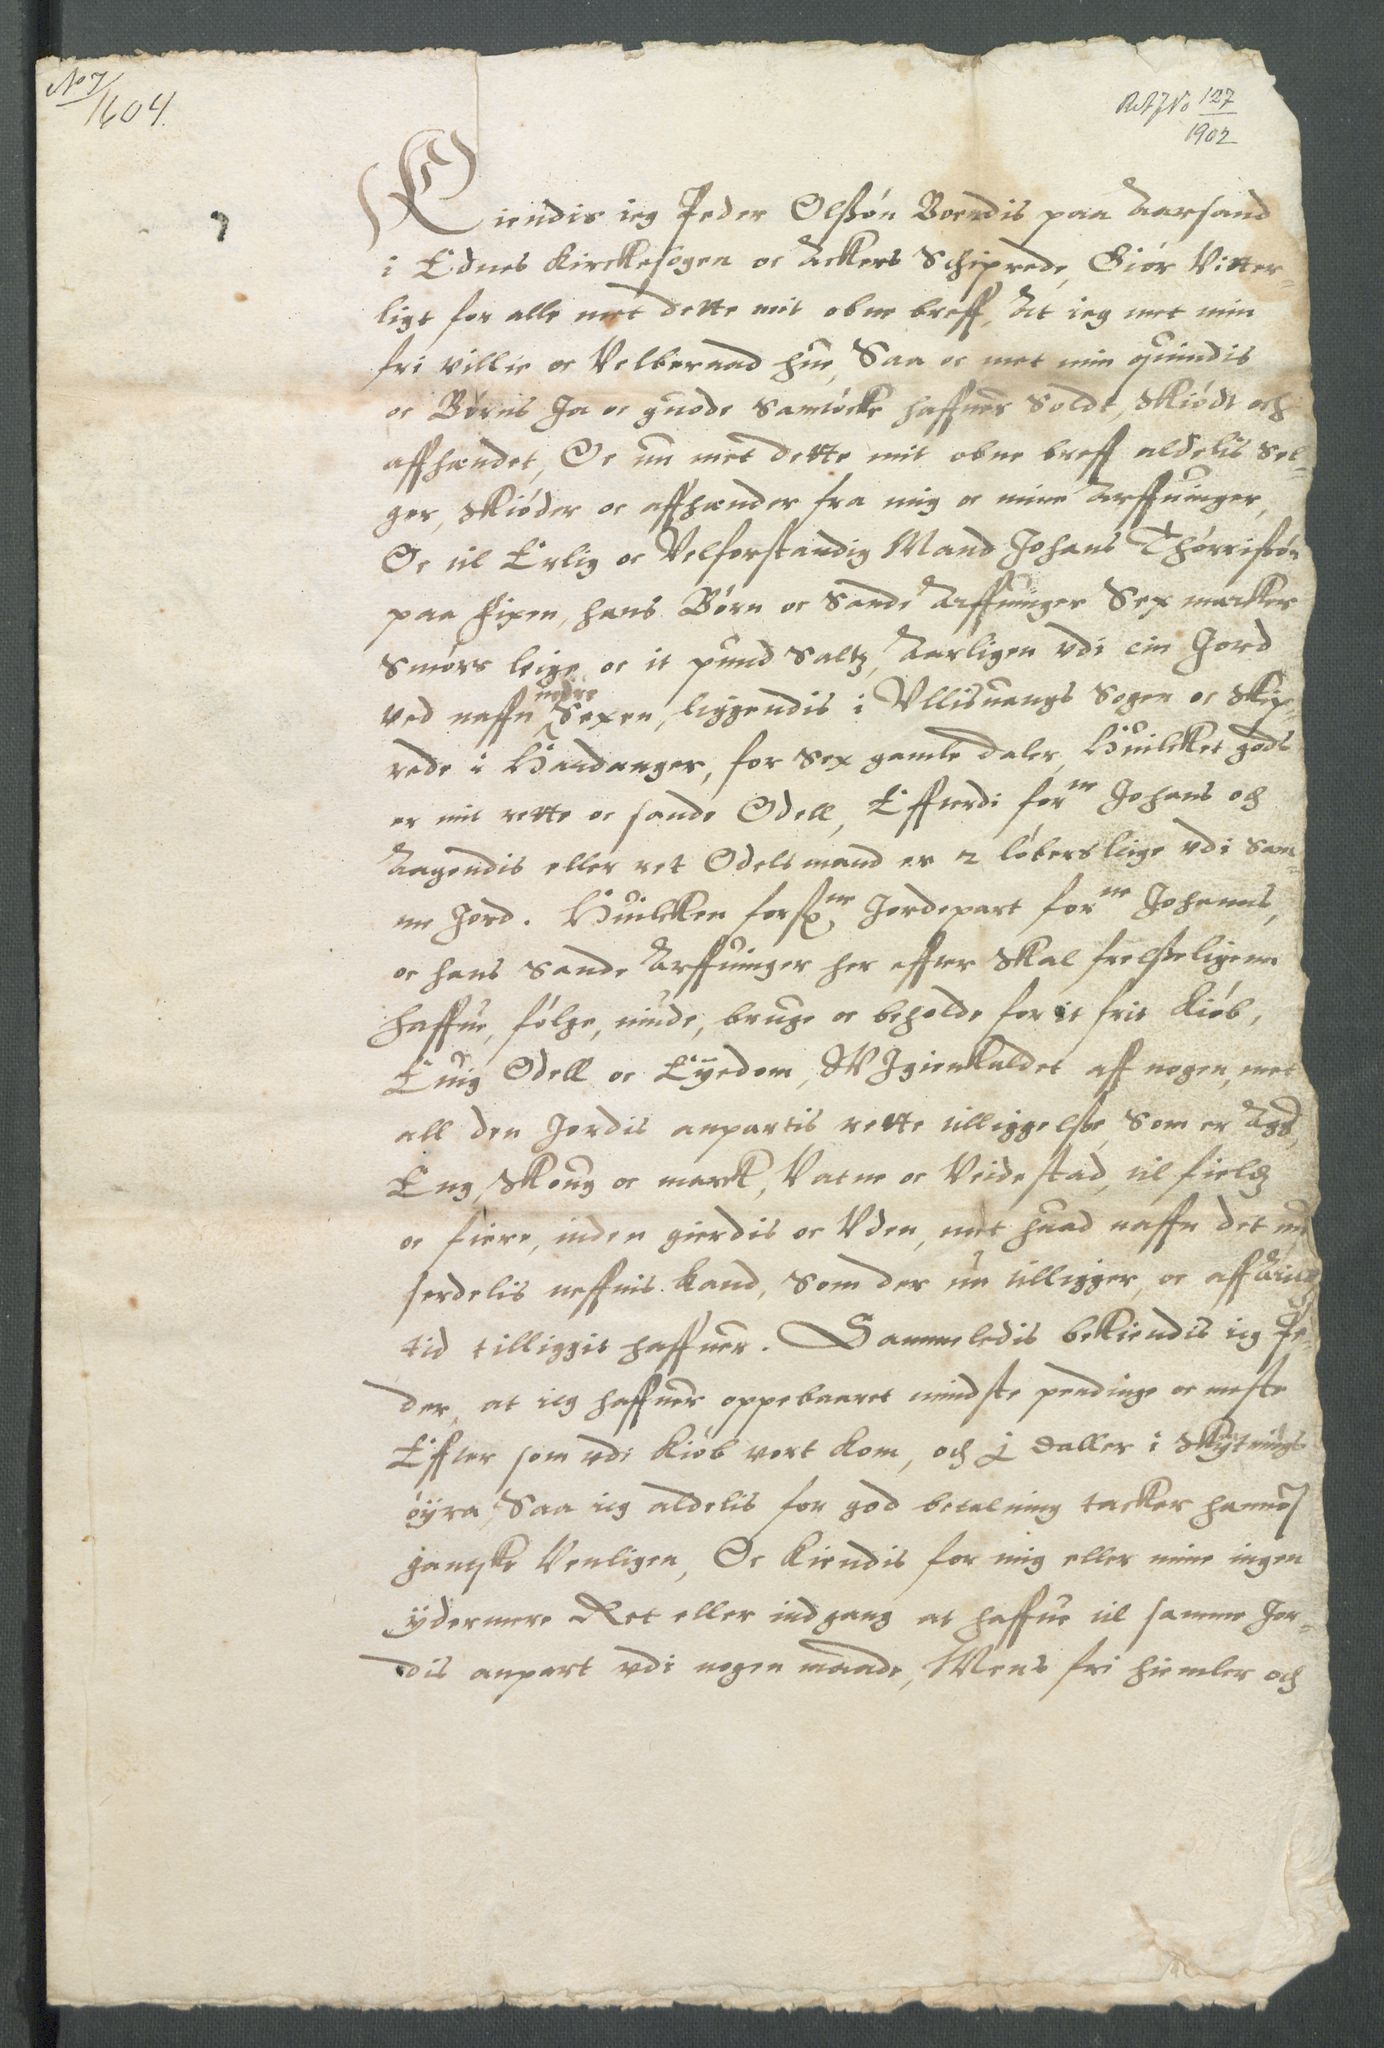 No 7/1604.
RAJNo 127/1902
Kiendis ieg Peder Olssøn Boendis paa Aarsand
i Ednes Kirckesogen oc Ackers Schiprede, Giør Vitter-
ligt for alle met dette mit obne breff, At ieg met min
fri villie oc Velberaad hue, Saa oc met min quindis
oc Børns Ja oc guode Samtöcke haffuer Soldt, skiödt och
affhændet, Oc nu met dette mit obne breff aldelis Sel-
ger, skiöder oc affhænder fra mig oc mine Arffuinger,
Oc til Erlig oc Velforstandig Mand Johans Thörrissön
paa Fixen, hans Börn oc Sande Arffuinger Sex marcker
Smörs leige oc it pund Saltz, Aarligen vdi ein Jord
ved naffn nedre Sexen, liggendis i Vllisuangs Sogen oc Skip-
rede i Hardanger, for Sex gamle daler, Huilcket gods
er mit rette oc sande Odell, Efftterdi forne Johans och
Aagendis eller ret Odelsmand er 2 löbersleige vdi Sam-
me Jord. Huilcken forsne Jordepart forne Johanns,
oc hans Sande Arffuinger her effter skal frelsseligenn
haffue, fölge, niude, bruge oc beholde for it frit Kiöb,
Euig Odell oc Eyedom, WIgienkaldet aff nogen, met
all den Jordis anpartis rette tilliggelsse, Som er Ager,
Eng, Skoug oc marck, Vatne oc Veidestad, til fields
oc fiere, inden gierdis oc Vden, met huad naffn det nu
serdelis neffnis kand, Som der nu tilligger, oc aff Arilds
tid tilliggit haffuer. Sammeledis bekiendis ieg Pe-
der, at ieg haffuer oppebaaret mindste pendinge oc meste
Effter som vdi Kiöb vort kom, och j daller i Skötnings
öyra, Saa ieg aldelis for god betalning tacker hannom
gantske Venligen, Oc Kiendis for mig eller mine ingen
ydermere Ret eller indgang at haffue til samme Jor-
dis anpart vdi nogen maade, Mens fri hiemler och